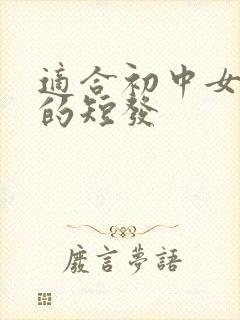 適合初中女
的短發
廢言夢語